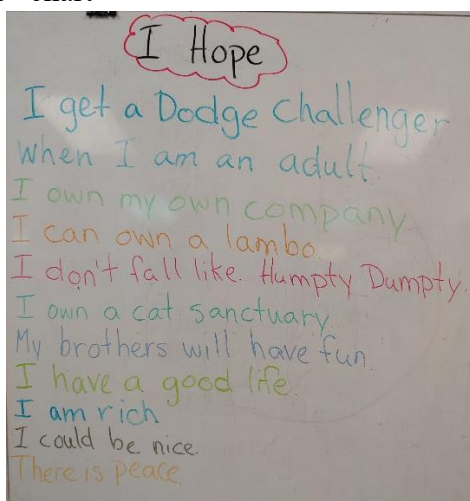 I Hope
I get a Dodge Challenger
When I am an adult.
I own my own company.
I can own a lambo.
I don't fall like. Humpty Dumpty.
I own a cat sanctuary.
My brothers will have fun.
I have a good life.
I am rich
I could be nice.
There is peace.